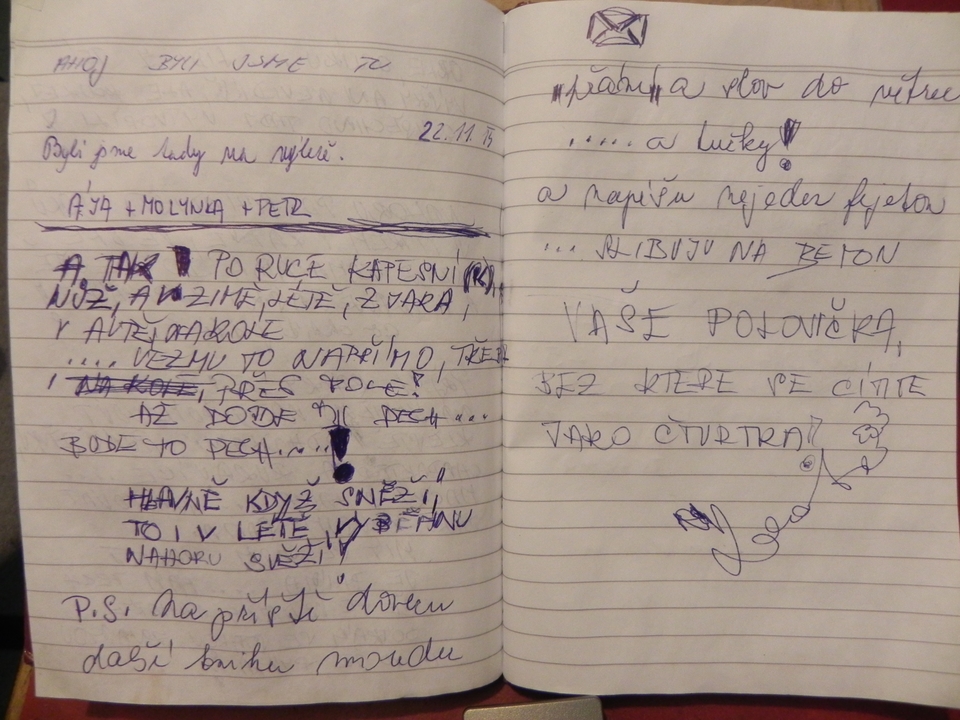 AHOJ BYLI JSME TU
22.11.
Byli jsme tady na výletě.
ÁJA + MOLYNKA + PETR
A TAK! PO RUCE KAPESNÍ
NŮŽ, A V ZIMĚ, LÉTĚ, Z JARA,
V AUTĚ, NA KOLE
.... VEZMU TO NAPŘÍMO,
NA KOLE, PŘES POLE!
AŽ DOJDE DECH ...
BUDE TO PECH .....!
HLAVNĚ KDYŽ SNĚŽÍ,
TO I V LÉTĚ, VYBĚHNU
NAHORU SVĚŽÍ!
P.S. Na příště donesu
další knihu moudu
"přání" a slov do větru
..... a lučky!
a napíšu nejeden fejeton
... SLIBUJU NA BETON
VAŠE POLOVIČKA,
BEZ KTERÉ SE CÍTÍTE
JAKO ČTVRTKA!